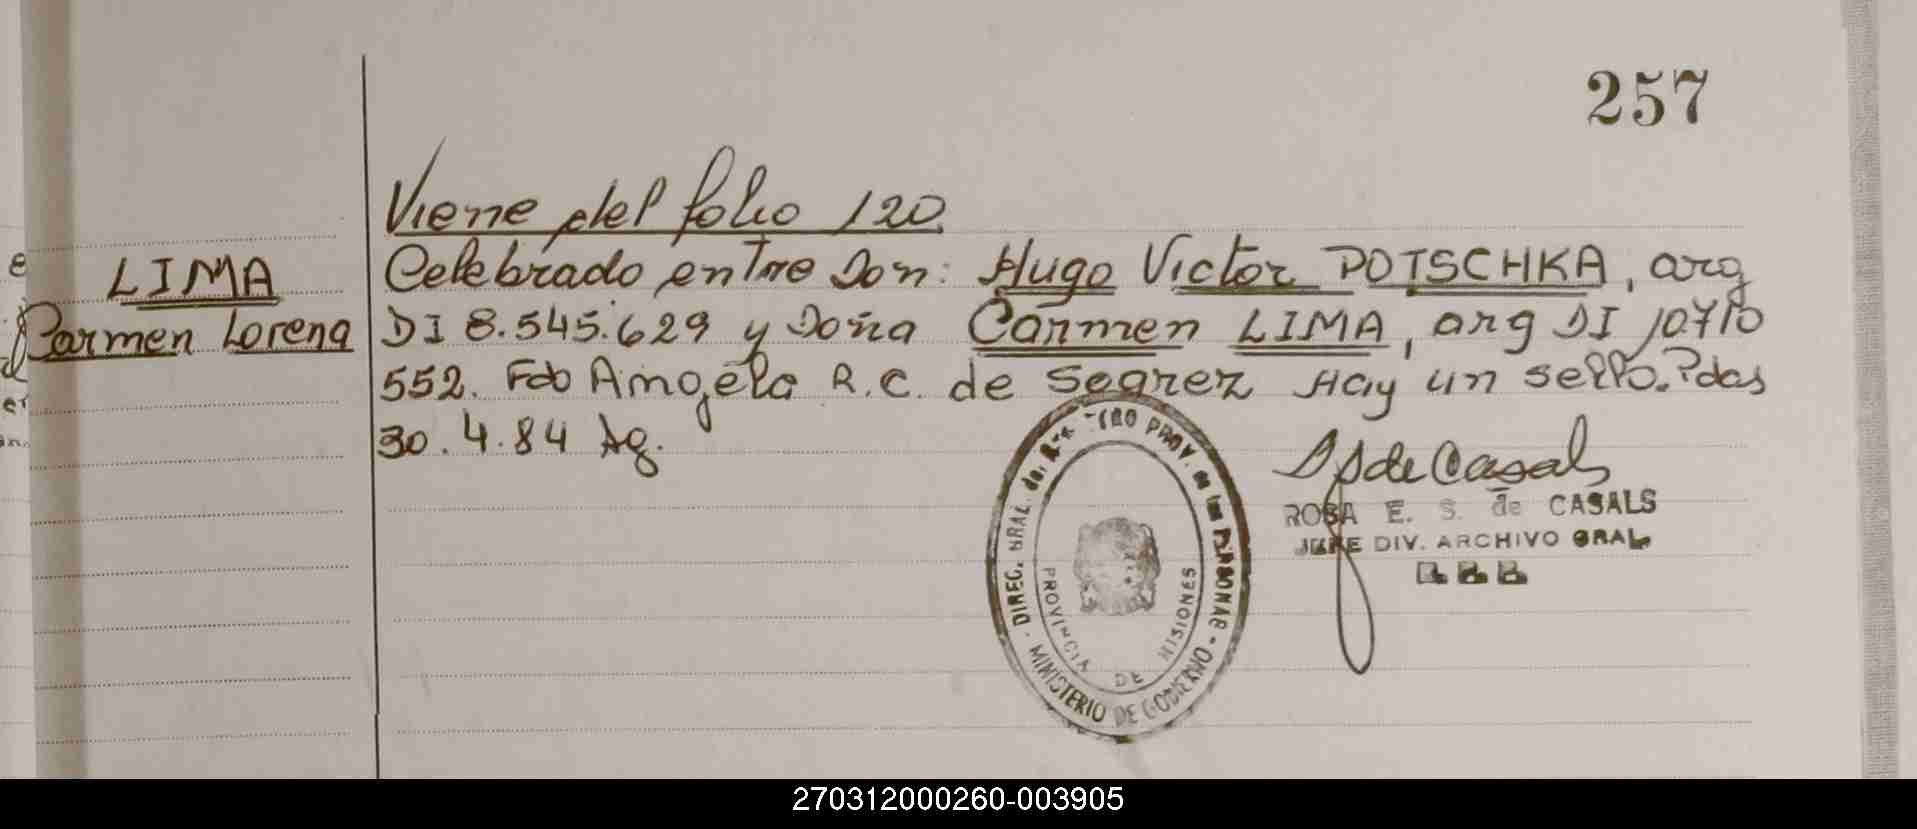 257
Viene del folio 120
LIMA
Carmen Lorena
Celebrado entre Don: Hugo Victor POTSCHKA, arg
DI 8.545.629 y Doña Carmen LIMA, arg DI 10.710
552. Fdo Angela R.C. de Segrez Hay un sello. Pdas
30.4.84 Ag.
de Casals
ROSA E. S. de CASALS
JEFE DIV. ARCHIVO GRAL
DIREC. GRAL. del PROV. de las PERSONAS - MINISTERIO DE GOBIERNO -
PROVINCIA DE MISIONES
270312000260-003905